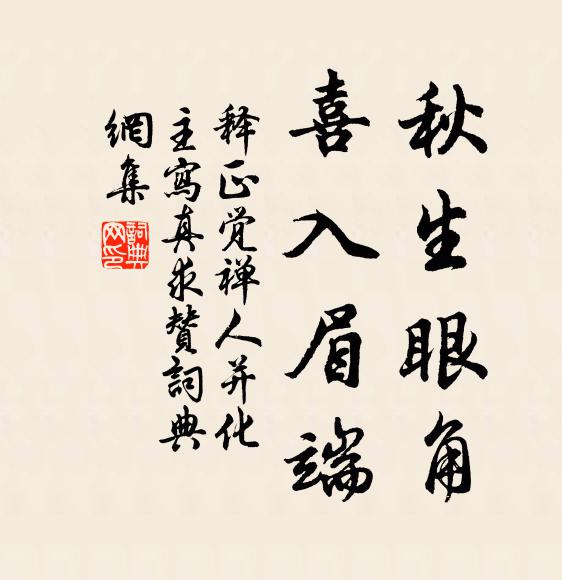 秋生眼角
喜入眉端
释正觉禅人并化
主写真求赞词典
網集
詞典
网印